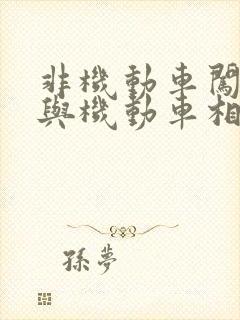 非機動車闖
與機動車相
孫夢